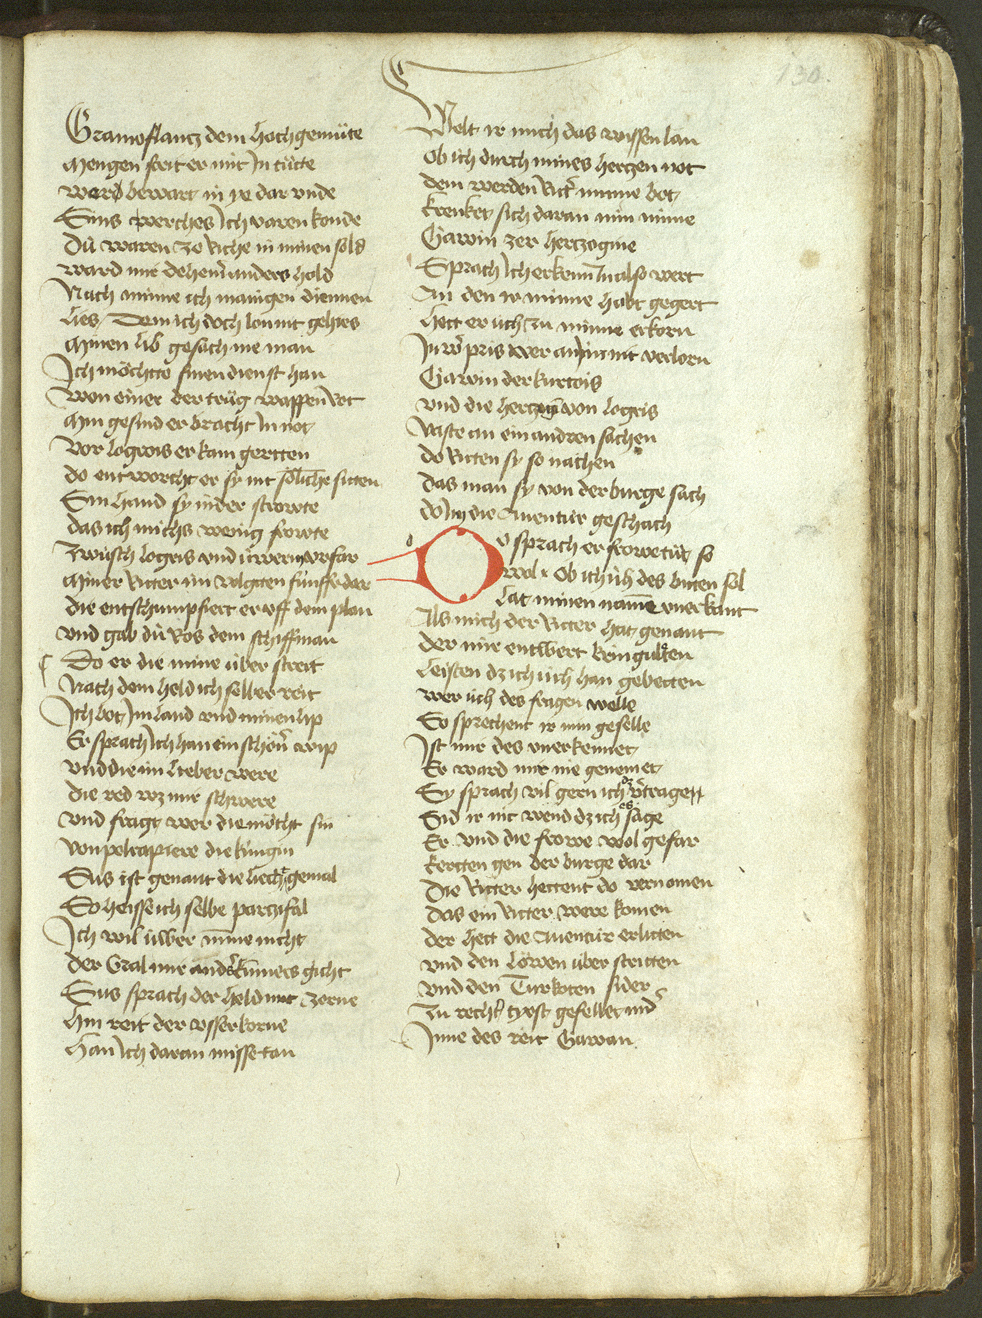 130.
Gramoflantz dem hochgemüte
Mengen streit er mit Im tütte
ward bewart in ye dar vnde
Sins werches Ich varen konde
Dü waren ze Riche in minen sold
ward mir dehein anders hold
Nach minne ich manigen diennen
lies Dem ich doch lon nit gehies
Minen lib gesach nie man
Ich möchte sinen dienst han
Won einer der trüg waffen Rot
Min gesind er bracht In not
vor logrois er kam geritten
do entworcht er sy mit söliche sitten
Sin hand sy nider strowte
das ich michs wenig frowte
Zwüsch logris vnd üwerm vrfar
Miner Ritter im volgten fünffe dar
die entschumpfiert er vff dem plan
vnd gab dü Ros dem schiffman
Do er die mine über streit
Nach dem held ich selber reit
Ich bot Im land vnd minen lip
Er sprach Ich han ein schön wip
vnd die im lieber were
die red wz mir schwere
vnd fragt wer die möcht sin
von pelrapiere die küngin
Sus ist genant die liecht gemal
So heisse ich selbe parczifal
Ich wil üwer mine nicht
der Gral mir anders kumers gicht
Sus sprach der held mit zorne
Hin reit der vsserkorne
Han Ich daran misse tan
Welt ir mich das wissen lan
Ob ich durch mines hertzen not
dem werden Ritter minne bot
krenket sich daran min minne
Gawin zer hertzogine
Sprach Ich erkenn In also wert
An den ir minne habt gegert
Hett er üch zu minne erkorn
Iuwer pris wer an im nit verlorn
Gawin der kurtois
vnd die hertzogin von logris
vaste an ein andren sachen
do Ritten sy so nachen
das man sy von der burge sach
do Im die Auentür geschach
Do sprach er frowe tüt so
wol Ob ich üch des bitten sol
Lat minen namen vnerkant
Als mich der Ritter hat genant
der mir entwert kringulieten
Leisten dz ich üch han gebetten
wer üch des fragen welle
So sprechent ir min geselle
Ist mir des vnerkennet
Er ward mir nie genemet
Sy sprach vil gern ich dz vertragen
Sid ir nit wend dz ich es sage
Er vnd die frowe wol gefar
kerten gen der burge dar
Die Ritter hettent do vernomen
das ein Ritter were komen
der hett die Auentür erlitten
vnd den löwen über stritten
vnd den Turkoten sider
Zu rechter tyost gefellet nider
Inne des reit Gawan